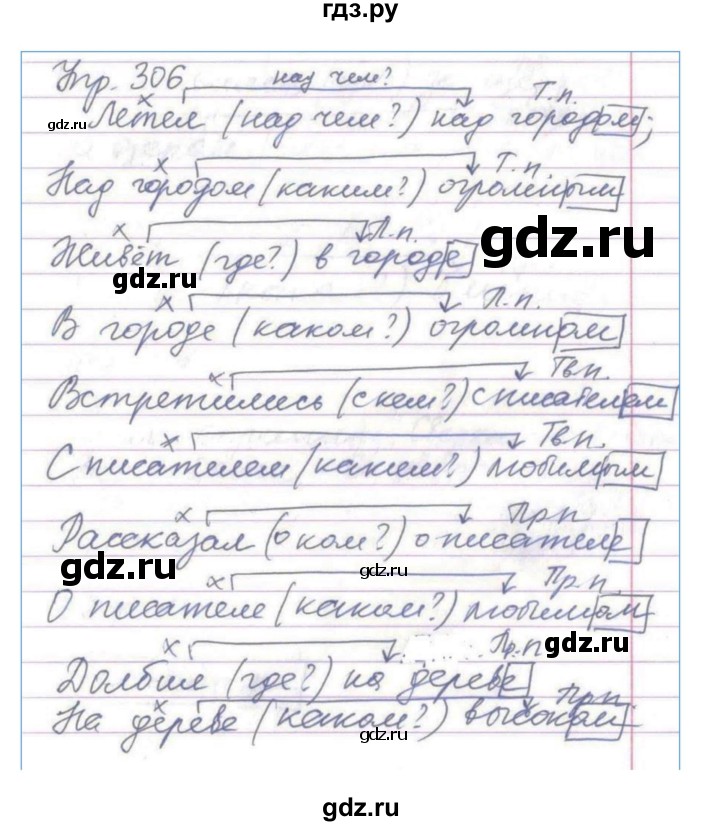 гдз.ру
Упр. 306 над чем?
Т.п.
gdz.ru Летел (над чем?) над городом;
Т.п.
Над городом (каким?) огромным
П.п. gdz.ru
Живёт (где?) в городе
gdz.ru
П.п.
В городе (каком?) огромном
Тв.п.
Встретились (с кем?) с писателем
Тв.п.
С писателем (каким?) любимым
Пр.п
Рассказал (о ком?) о писателе
gdz.ru gdz.ru
Пр.п.
О писателе (каком?) любимом
gdz.ru
Пр.п
Долбил (где?) на дереве
Пр.п.
На дереве (каком?) высоком.
gdz.ru
gdz.ru